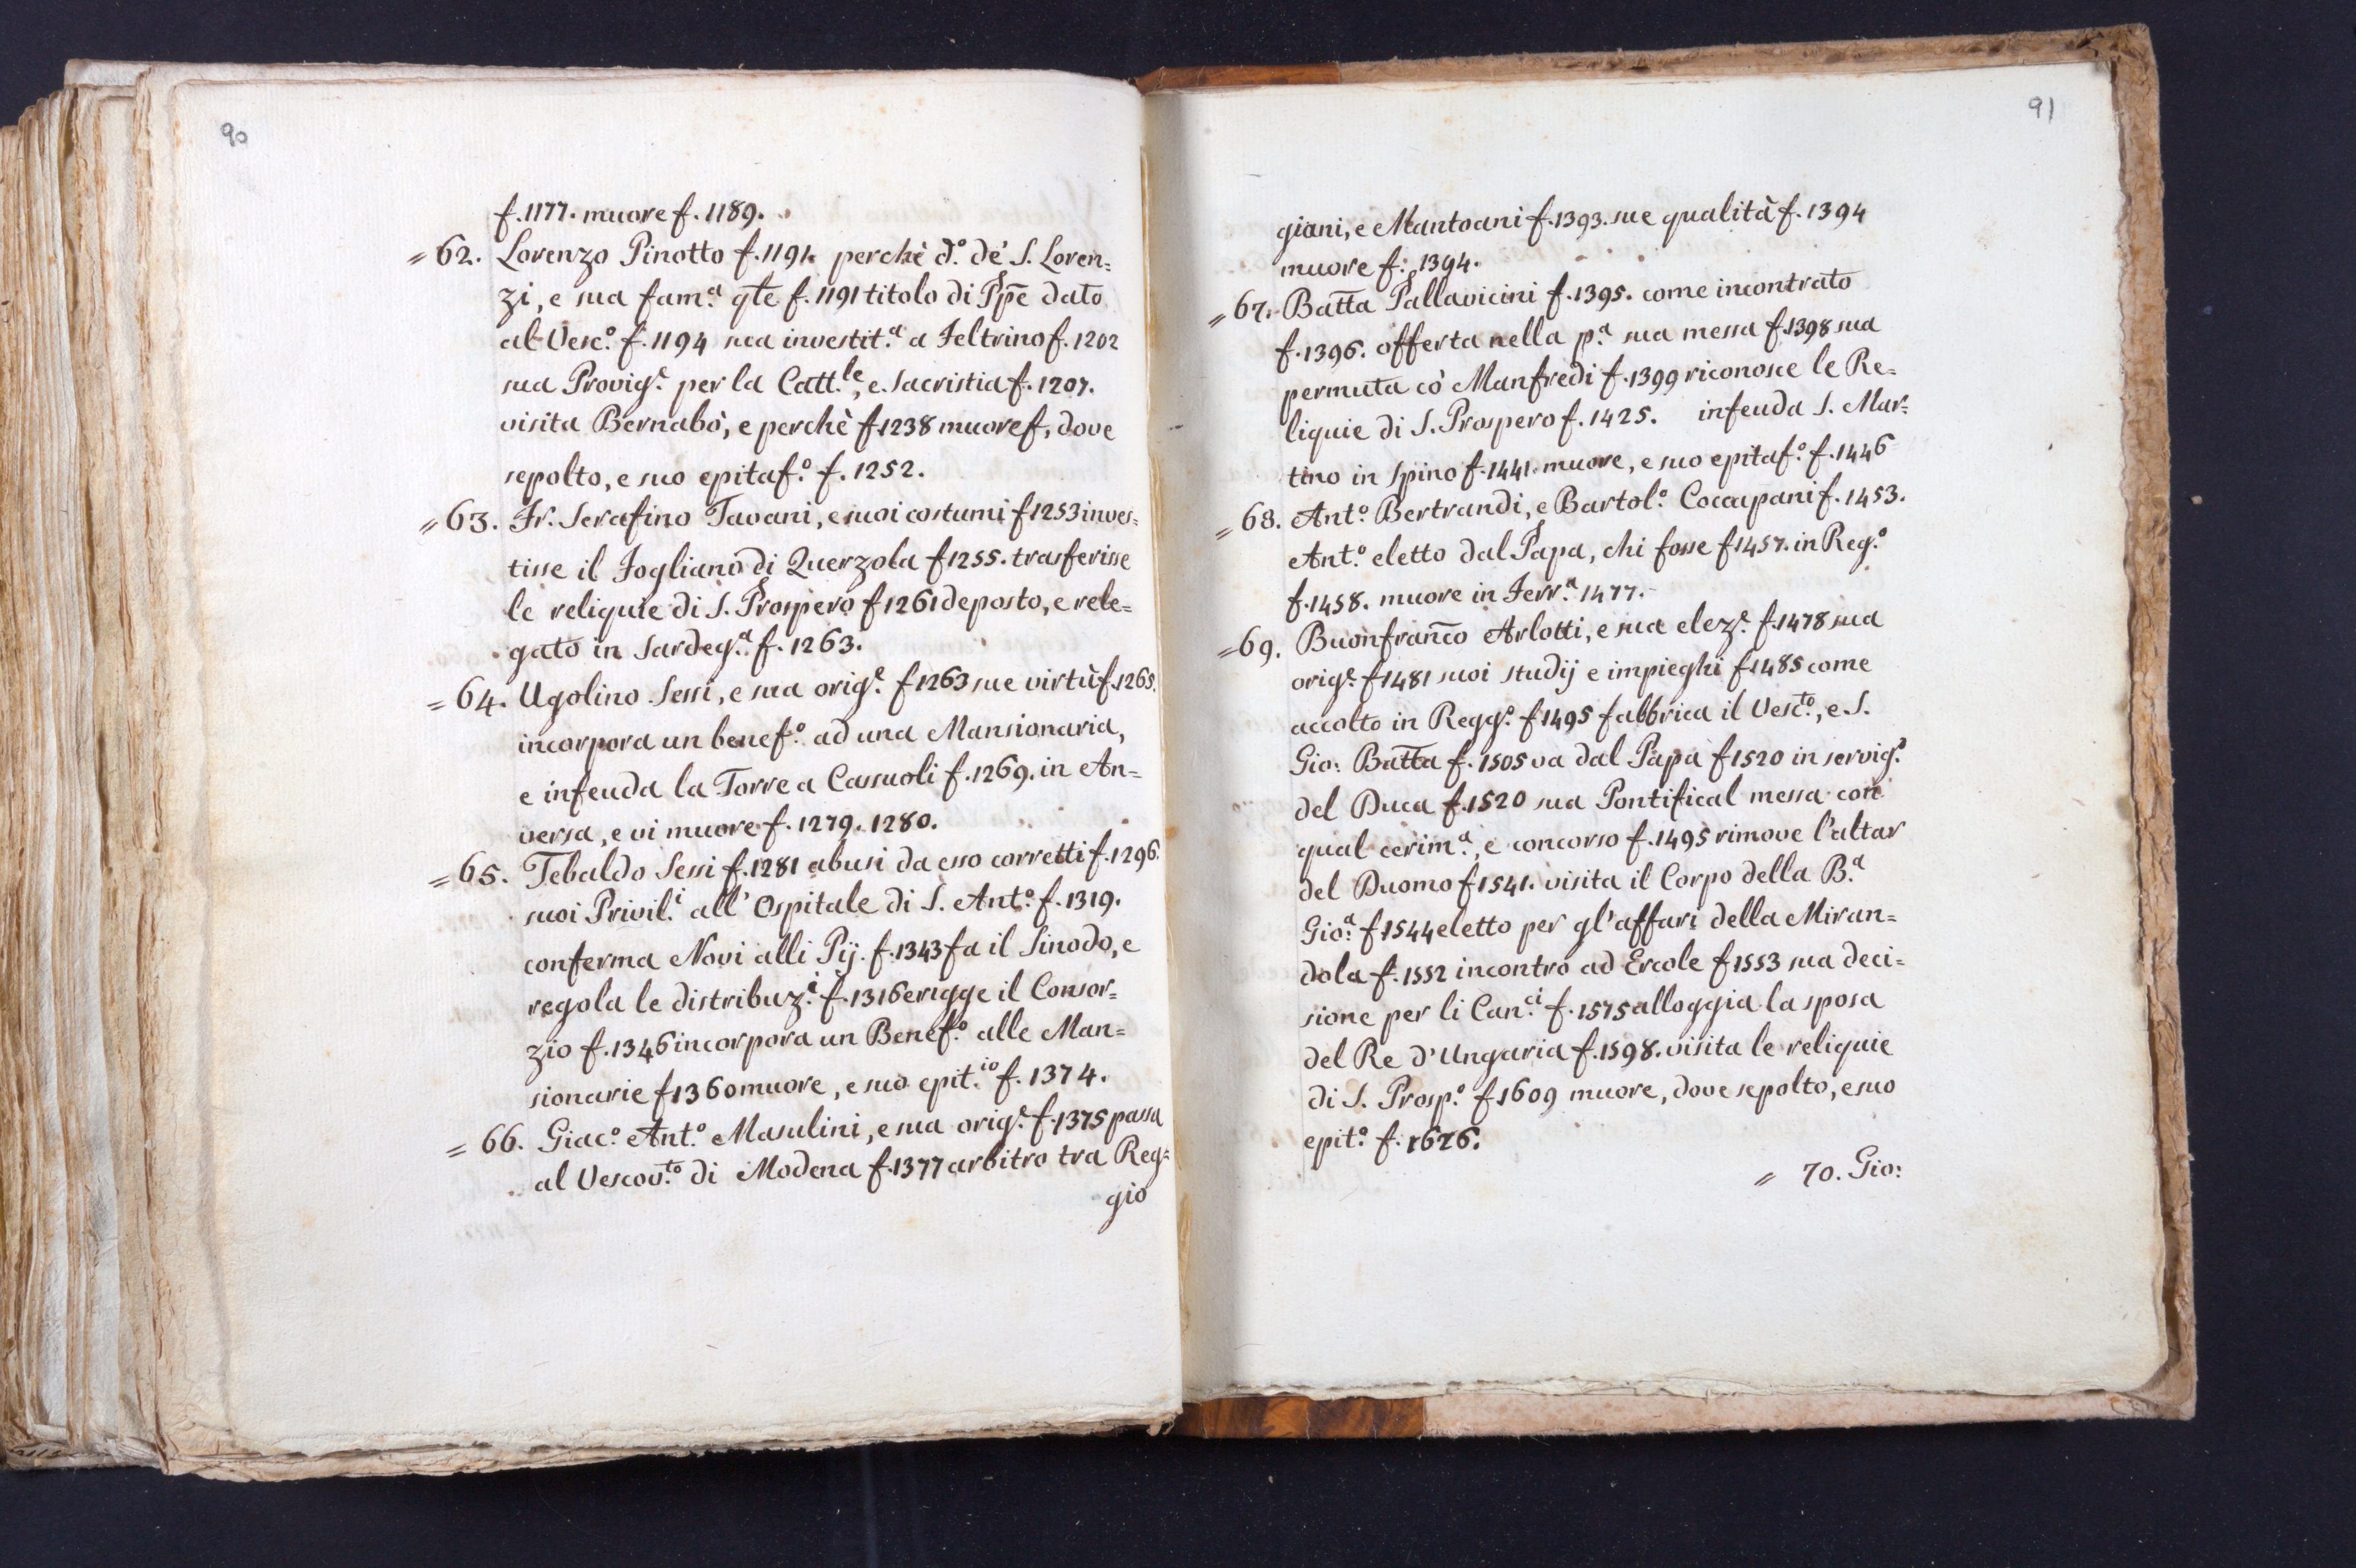 90
f. 1177. muore f. 1189.
= 62. Lorenzo Pinotto f. 1191. perchè d.º de' S. Loren=
zi, e sua fam.ª q̃te f. 1191 titolo di Pp̃e dato
al Vesc.º f. 1194 sua investit.ª a Feltrino f. 1202
sua Provig.e per la Catt.le, e Sacristia f. 1207.
visita Bernabò, e perchè f. 1238 muore f, dove
sepolto, e suo epitaf.º f. 1252.
= 63. Fr. Serafino Tavani, e suoi costumi f 1253 inves=
tisse il Fogliano di Querzola f 1255. trasferisse
le reliquie di S. Prospero f 1261 deposto, e rele=
gato in Sardeg.ª f. 1263.
= 64. Ugolino Sessi, e sua orig.e f 1263 sue virtù f. 1265.
incorpora un benef.º ad una Mansionaria,
e infeuda la Torre a Cassuoli f. 1269. in An=
versa, e vi muore f. 1279. 1280.
= 65. Tebaldo Sessi f. 1281 abusi da esso corretti f. 1296.
suoi Privil.i all' Ospitale di S. Ant.º f. 1319.
conferma Novi alli Pij. f. 1343 fa il Sinodo, e
regola le distribuz.i f. 1316 erigge il Consor=
zio f. 1346 incorpora un Benef.º alle Man=
sionarie f 1360 muore, e suo epit.io f. 1374.
= 66. Giac.º Ant.º Masulini, e sua orig.e f. 1375 passa
al Vescov.to di Modena f. 1377 arbitro tra Reg=
gio
91
giani, e Mantoani f. 1393. sue qualità f. 1394
muore f: 1394.
= 67. Batt̃a Pallavicini f. 1395. come incontrato
f. 1396. offerta nella p.ª sua messa f. 1398 sua
permuta cò Manfredi f. 1399 riconosce le Re=
liquie di S. Prospero f. 1425. infeuda S. Mar=
tino in Spino f. 1441. muore, e suo epitaf.º f. 1446
= 68. Ant.º Bertrandi, e Bartol.º Coccapani f. 1453.
Ant.º eletto dal Papa, chi fosse f 1457. in Reg.º
f. 1458. muore in Ferr.ª 1477.
= 69. Buonfranc̃o Arlotti, e sua elez.e f. 1478 sua
orig.e f 1481 suoi studij e impieghi f 1485 come
accolto in Regg.º f 1495 fabbrica il Vesc.to, e S.
Gio: Batt̃a f. 1505 va dal Papa f 1520 in servig.º
del Duca f. 1520 sua Pontifical messa con
qual cerim.ª, e concorso f. 1495 rimove l'altar
del Duomo f 1541. visita il Corpo della B.ª
Gio.ª f 1544 eletto per gl'affari della Miran=
dola f. 1552 incontro ad Ercole f 1553 sua deci=
sione per li Can.ci f. 1575 alloggia la sposa
del Re d'Ungaria f. 1598. visita le reliquie
di S. Prosp.º f 1609 muore, dove sepolto, e suo
epit.º f. 1626.
= 70. Gio: